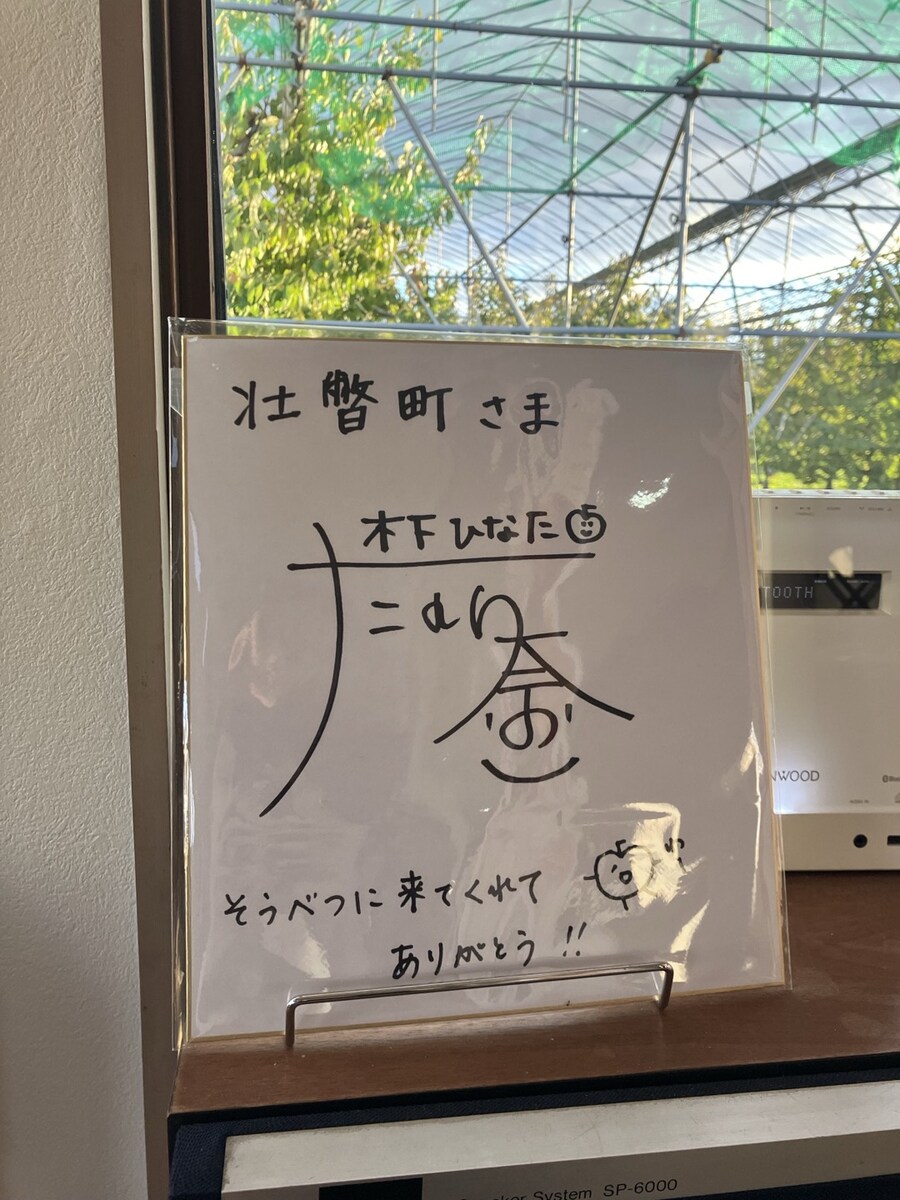 壮瞥町さま
木下ひなた
そうべつに来てくれて
ありがとう!!
TOOTH
NWOOD
Speaker System SP-6000